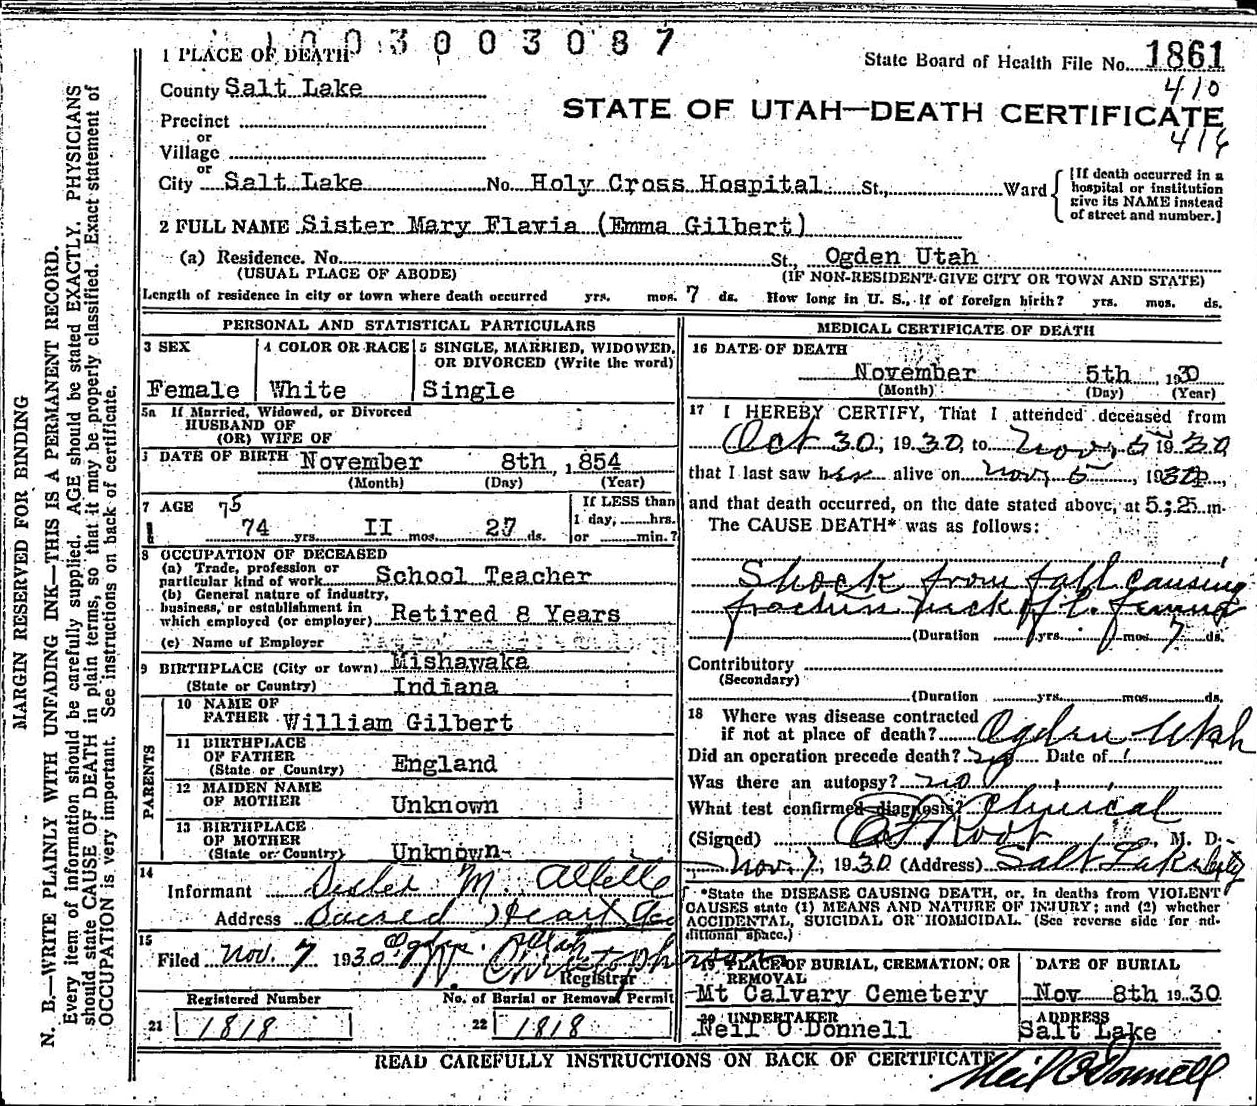 1003003087
1 PLACE OF DEATH
State Board of Health File No. 1861
410
County Salt Lake
STATE OF UTAH—DEATH CERTIFICATE
416
Precinct
or
Village
or
City Salt Lake No Holy Cross Hospital St., Ward
[If death occurred in a hospital or institution give its NAME instead of street and number.]
2 FULL NAME Sister Mary Flavia (Emma Gilbert)
(a) Residence. No. St., Ogden Utah
(USUAL PLACE OF ABODE) (IF NON-RESIDENT GIVE CITY OR TOWN AND STATE)
Length of residence in city or town where death occurred yrs. mos. 7 ds. How long in U. S., if of foreign birth? yrs. mos. ds.
PERSONAL AND STATISTICAL PARTICULARS
3 SEX
Female
4 COLOR OR RACE
White
5 SINGLE, MARRIED, WIDOWED, OR DIVORCED (Write the word)
Single
5a If Married, Widowed, or Divorced
HUSBAND OF
(OR) WIFE OF
DATE OF BIRTH November 8th, 1854
(Month) (Day) (Year)
7 AGE 75
74 yrs. II mos. 27 ds.
If LESS than
1 day, hrs.
or min.?
8 OCCUPATION OF DECEASED
(a) Trade, profession or
particular kind of work School Teacher
(b) General nature of industry,
business, or establishment in
which employed (or employer) Retired 8 Years
(c) Name of Employer
9 BIRTHPLACE (City or town) Mishawaka
(State or Country) Indiana
PARENTS
10 NAME OF
FATHER William Gilbert
11 BIRTHPLACE
OF FATHER
(State or Country) England
12 MAIDEN NAME
OF MOTHER Unknown
13 BIRTHPLACE
OF MOTHER
(State or Country) Unknown
14
Informant Sister M.
Address Sacred Heart
15
Filed Nov. 7 1930 Ogden, Utah
Registrar
Registered Number
21 1818
No. of Burial or Removal Permit
22 1818
MEDICAL CERTIFICATE OF DEATH
16 DATE OF DEATH
November 5th 1930
(Month) (Day) (Year)
17 I HEREBY CERTIFY, That I attended deceased from
Oct 30, 1930, to Nov, 5 1930
that I last saw her alive on Nov, 5, 1930,
and that death occurred, on the date stated above, at 5:25 m.
The CAUSE DEATH* was as follows:
Shock from fall causing
fracture neck of L. femur
(Duration yrs. mos. 7 ds.
Contributory
(Secondary)
(Duration yrs. mos. ds.
18 Where was disease contracted
if not at place of death? Ogden Utah
Did an operation precede death? no Date of
Was there an autopsy? no
What test confirmed diagnosis? Clinical
(Signed) Root, M. D.
Nov. 7, 1930 (Address) Salt Lake City
*State the DISEASE CAUSING DEATH, or, in deaths from VIOLENT
CAUSES state (1) MEANS AND NATURE OF INJURY; and (2) whether
ACCIDENTAL, SUICIDAL OR HOMICIDAL. (See reverse side for ad-
ditional space.)
19 PLACE OF BURIAL, CREMATION, OR
REMOVAL
Mt Calvary Cemetery
DATE OF BURIAL
Nov 8th 1930
20 UNDERTAKER
Neil O Donnell
ADDRESS
Salt Lake
READ CAREFULLY INSTRUCTIONS ON BACK OF CERTIFICATE
Neil O'Donnell
MARGIN RESERVED FOR BINDING
N. B.—WRITE PLAINLY WITH UNFADING INK—THIS IS A PERMANENT RECORD.
Every item of information should be carefully supplied. AGE should be stated EXACTLY. PHYSICIANS
should state CAUSE OF DEATH in plain terms, so that it may be properly classified. Exact statement of
OCCUPATION is very important. See instructions on back of certificate.